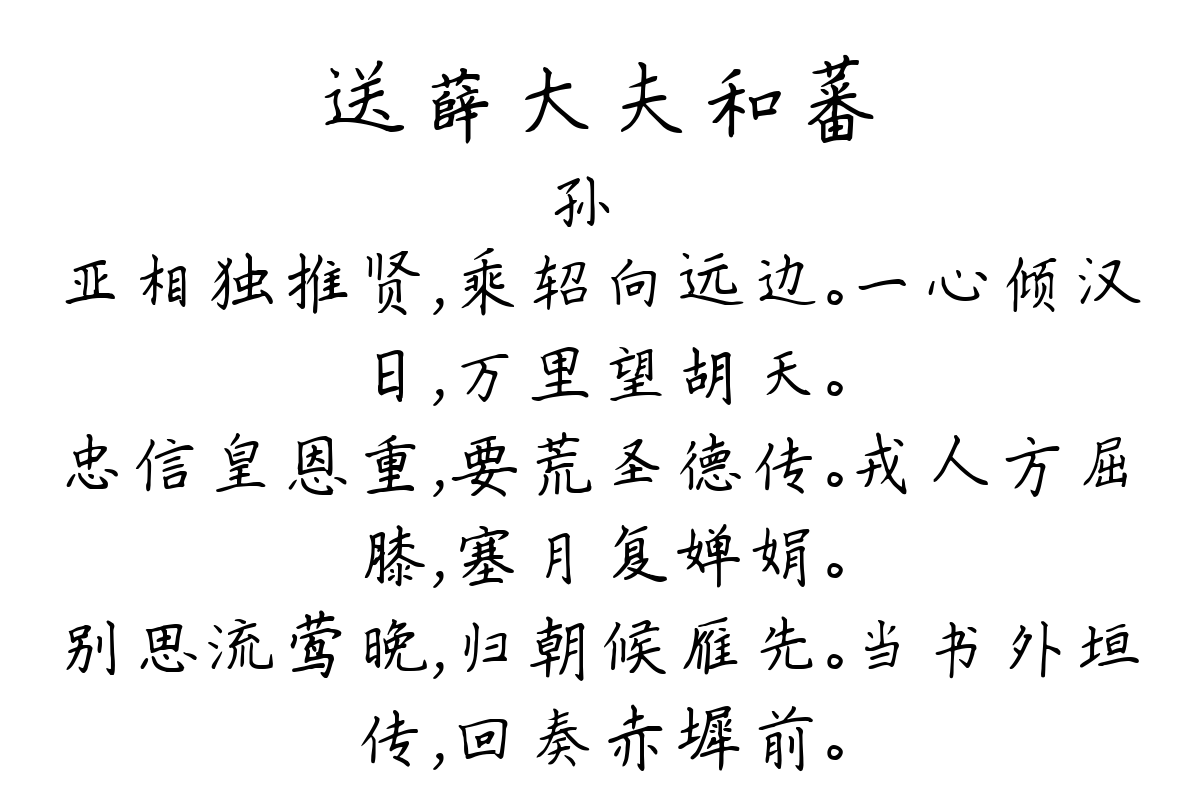 送薛大夫和蕃
孙
亚相独推贤,乘轺向远边。一心倾汉
日,万里望胡天。
忠信皇恩重,要荒圣德传。戎人方屈
膝,塞月复婵娟。
别思流莺晚,归朝候雁先。当书外垣
传,回奏赤墀前。